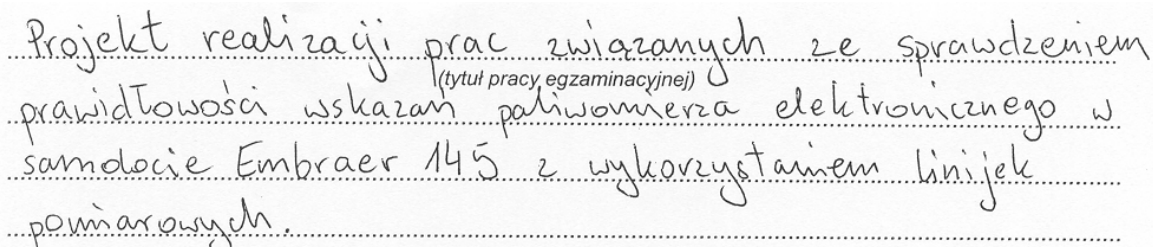 Projekt realizacji prac związanych ze sprawdzeniem
(tytuł pracy egzaminacyjnej)
prawidłowości wskazań paliwomierza elektronicznego w
samolocie Embraer 145 z wykorzystaniem linijek
pomiarowych.